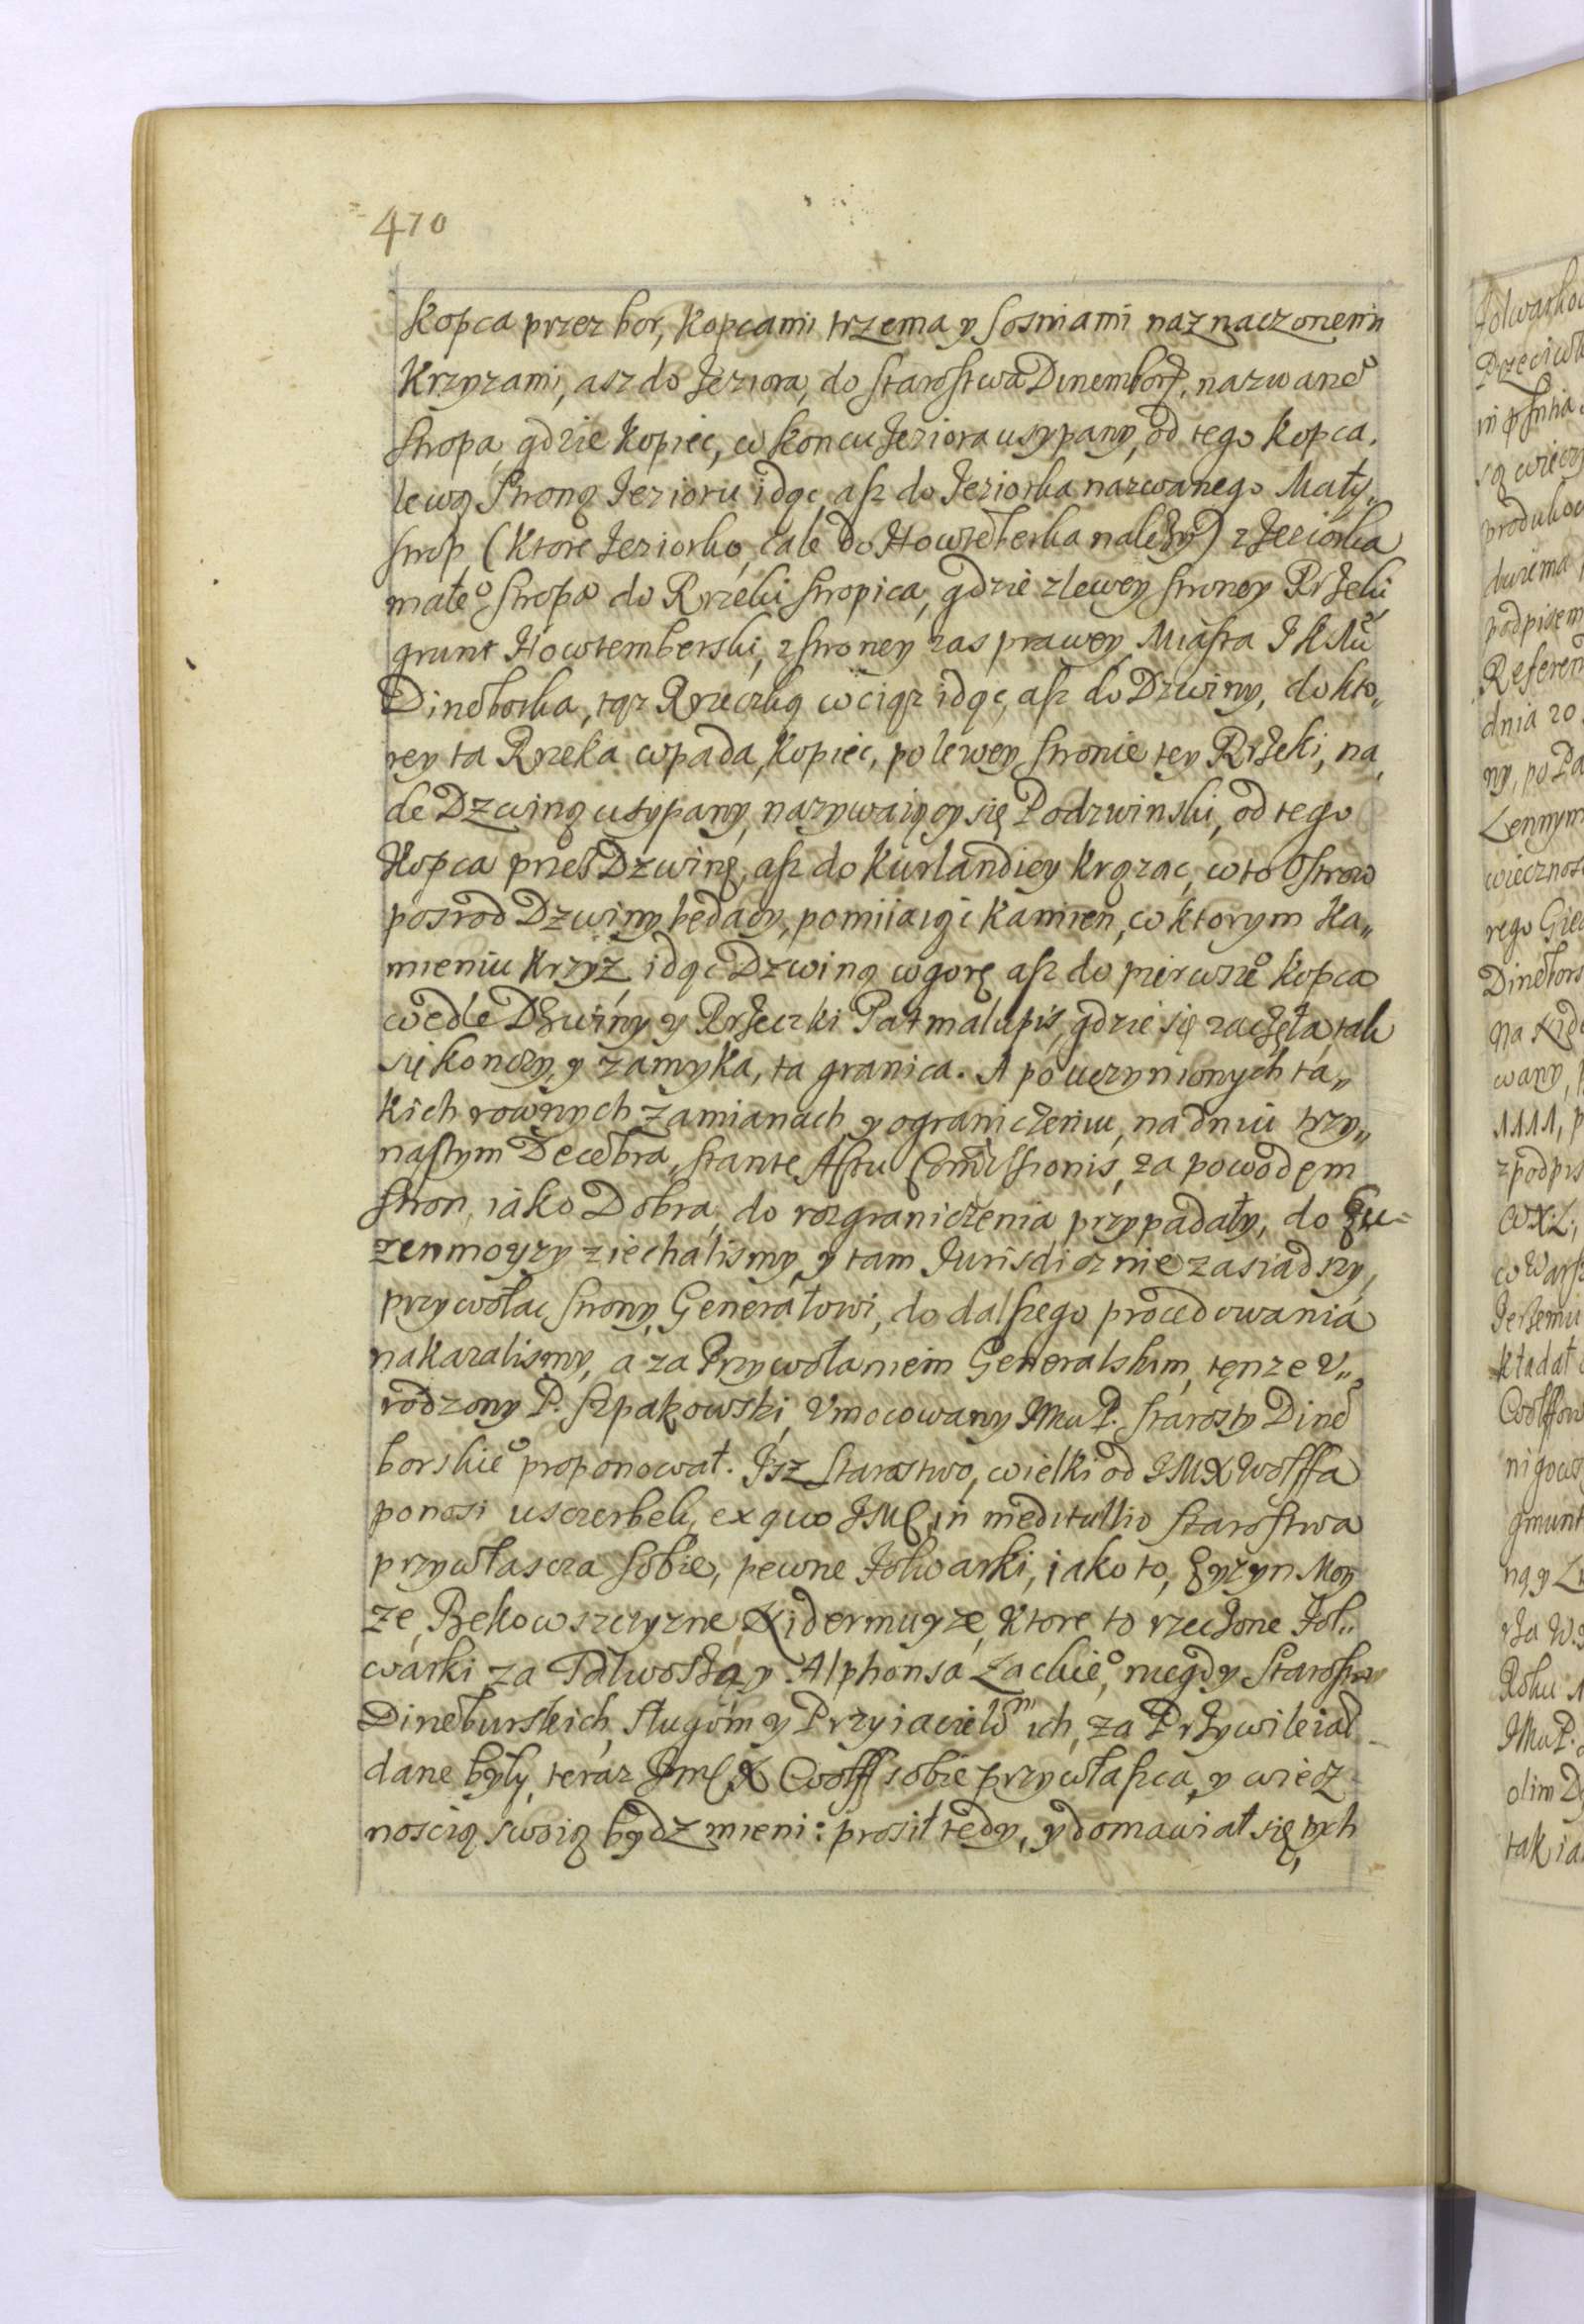 470
Kopca przez bor, Kopcami trzema y sosniami naznaczonemi
Krzyzami, asz do Jeziora, do Starostwa Dinemborz. nazwane°
Stropa, gdzie Kopiec, w Koncu Jeziora usypany, od tego Kopca,
lewą Stroną Jezioru idąc, asz do Jeziorka nazwanego Mały„
strop, (Ktore Jeziorko, cale do Howtēberka nalezy) z Jeziorka
małe° Strop° do Rzeki Stropica, gdzie z lewey stroney Rzeki
grunt Howtemberski, z stroney zas prawey Miasta JKMci
Dinēborka, tąz Rzeczką wciąz idąc, asz do Dzwiny, do kto„
rey ta Rzeka wpada, Kopiec, po lewey stronie tey Rzeki, na,
de Dzwiną usypany, nazywaiący się Podzwinski, od tego
Kopca przes Dzwinę, asz do Kurlandiey Krązac, w to Ostrow
posrod Dzwiny będacy, pomiiaiąc Kamien, w ktorym Ka„
mieniu Krzyż idąc Dzwiną w gorę asz do pierwsze° Kopca
wedle Dzwiny y Rzeczki Patmalupis, gdzie się zaczęła tak
się konczy, y zamyka, ta granica. A po uczynionych ta„
kich rownych zamianach y ograniczeniu, na dniu trzy„
nastym Decēbra, stante Actu Comissionis, za powodem
stron, iako Dobra, do rozgraniczenia przypadały, do Lu-
zenmoyzy ziechalismy, y tam Jurisdicznie zasiadszy,
przywołac strony, Generałowi, do dalszego procedowania
nakazalismy, a za Przywołaniem Generalskim, tęnze V„
rodzony P. Szpakowski, Vmocowany JMci P. Starosty Dinē
borskie° proponował. Jsz Starostwo, wielki od JMX Wolffa
ponosi usczerbek, ex quo JMC in meditullio Starostwa
przywłascza sobie, pewne Folwarki, iako to, Lyzyn Moy
ze, Bekowszczyzne, Xidermuyze, Ktore to rzeczone Fol„
warki za Palwoską y Alphonsa Lackie°, niegdy Starostow
Dinēburskich, Sługom y Przyiaciełom ich, za Przywileiad
dane były, teraz JmC X Wolff sobie przywłasca, y wiecz
noscią swoią bydz mieni: prosił tedy, y domawiał się, tych